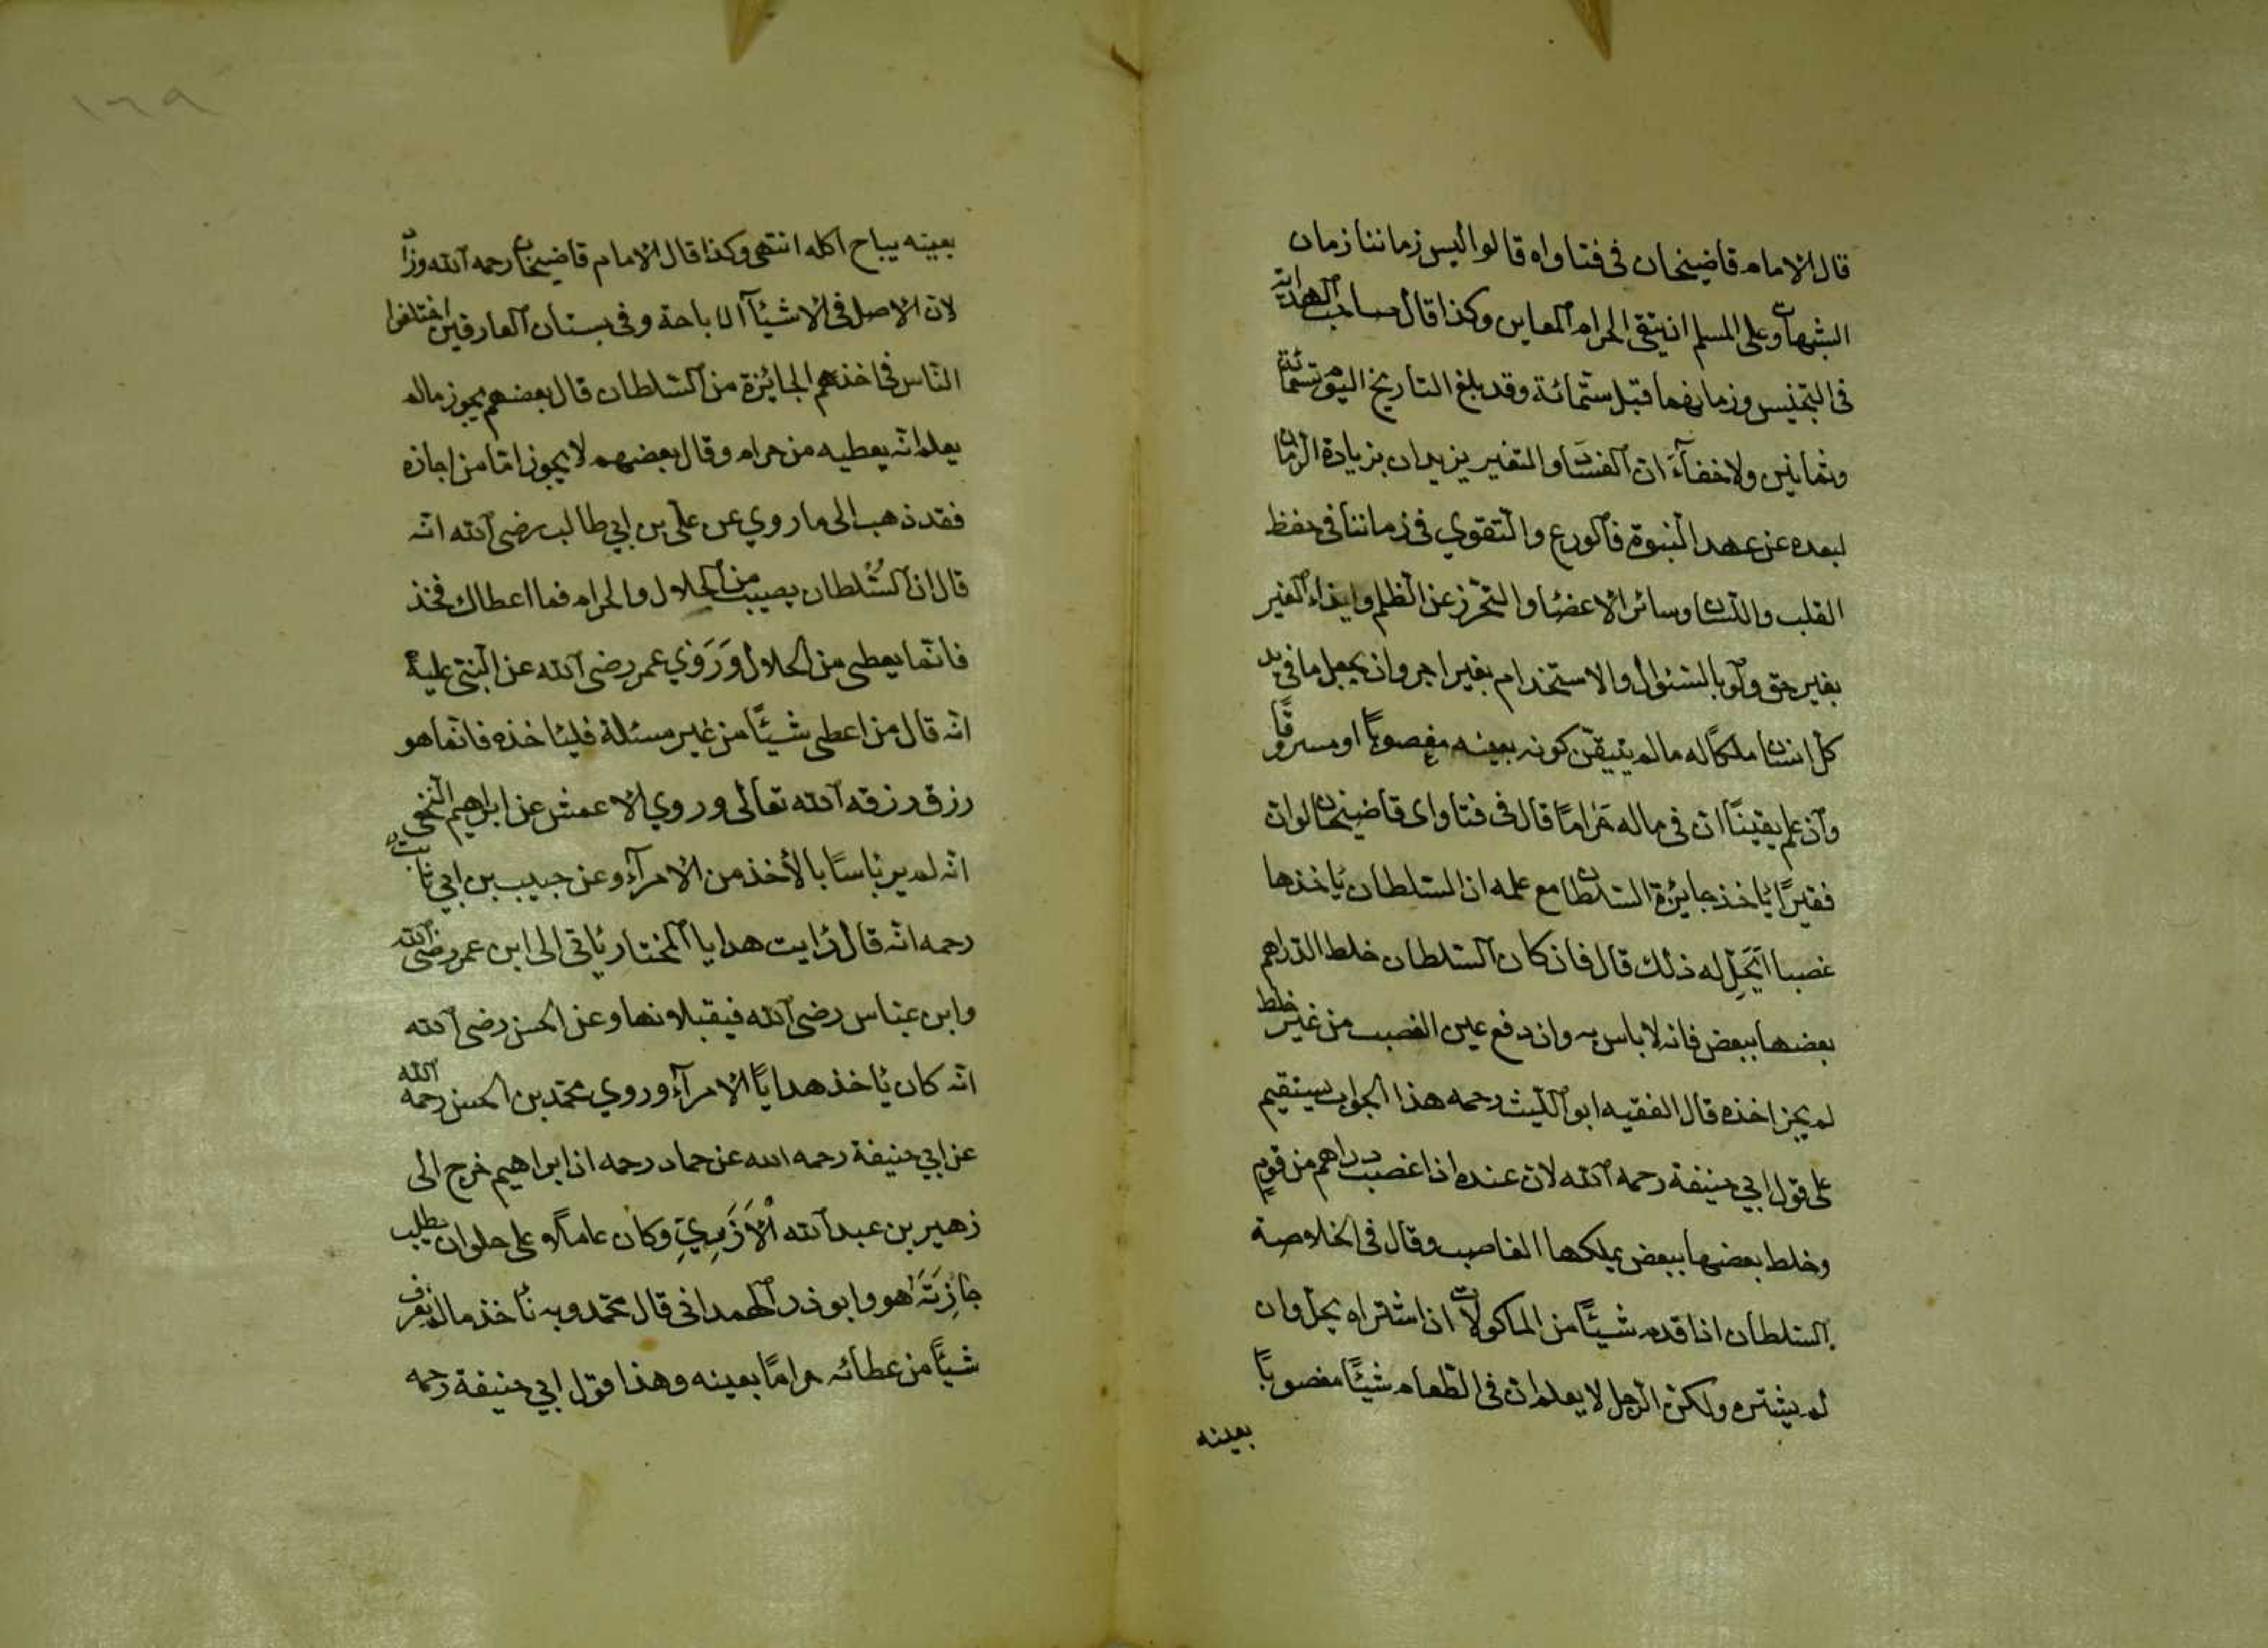 قال الامام قاضيخان فى فتاواه قالوا ليس زماننا زمان
الشبهات وعلى المسلم ان يتقى الحرام المعاين وكذا قال صاحب الهداية
فى التجنيس وزمانهما قبل ستمائة وقد بلغ التاريخ اليوم تسعمائة
وثمانين ولا خفاء ان الفساد والتغير يزيدان بزيادة الزمان
لبعده عن عهد النبوة فالورع والتقوي فى زماننا فى حفظ
القلب واللسان وسائر الاعضاء والتحرز عن الظلم وايذاء الغير
بغير حق ولو بالسئوال والاستخدام بغير اجر وان يجعل ما فى يد
كل انسان ملكًا له ما لم يتيقن كونه بعينه مغصوبًا او مسروقًا
وان علم يقينًا ان فى ماله حَرامًا قال فى فتاواى قاضيخان لو ان
فقيرًا ياخذ جائزة السلطان مع علمه ان السلطان ياخذها
غصبا ايَحِل له ذلك قال فان كان السلطان خلط الدراهم
بعضها ببعض فانه لا باس به وان دفع عين الغصب من غير خلط
لم يجز اخذه قال الفقيه ابو الليث رحمه هذا الجواب يستقيم
على قول ابي حنيفة رحمه الله لان عنده اذا غصب دراهم من قومٍ
وخلط بعضها ببعض يملكها الغاصب وقال فى الخلاصة
السلطان اذا قدم شيئًا من الماكولات ان اشتراه يحل وان
لم يشتره ولكن الرجل لا يعلم ان فى الطعام شيئًا مغصوبًا
بعينه
١٦٩
بعينه يباح اكله انتهى وكذا قال الامام قاضيخان رحمه الله وزاد
لان الاصل فى الاشياء الاباحة وفى بستان العارفين اختلفوا
الناس فى اخذهم الجائزة من السلطان قال بعضهم يجوز ماله
يعلم انه يعطيه من حرام وقال بعضهم لا يجوز امّا من اجازه
فقد ذهب الى ما روي عن علّى بن ابي طالب رضى الله انه
قال ان السُلطان يصيب من الحلال والحرام فما اعطاك فخذ
فانّما يعطى من الحلال وَرَوٰي عمر رضى الله عن النبى عليه
انه قال من اعطى شيئًا من غير مسئلة فليأخذه فانّما هو
رزق رزقه الله تعالى وروي الاعمش عن ابراهيم النخعى
انه لم ير بأسًا بالأخذ من الامرآء وعن حبيب بن ابي ثابت
رحمه انه قال رأيت هدايا المختار يأتى الى ابن عمر رضى الله
وابن عباس رضى الله فيقبلونها وعن الحسن رضى الله
انه كان يأخذ هدايا الامرآء وروي محمد بن الحسن رحمه الله
عن ابي حنيفة رحمه الله عن حماد رحمه ان ابراهيم خرج الى
زهير بن عبد الله الأزدي وكان عاملًا على حلوان يطلب
جائزته هو وابو ذر الهمدانى قال محمد وبه نأخذ ما لم نعرف
شيئًا من عطائه حرامًا بعينه وهذا قول ابي حنيفة رحمه